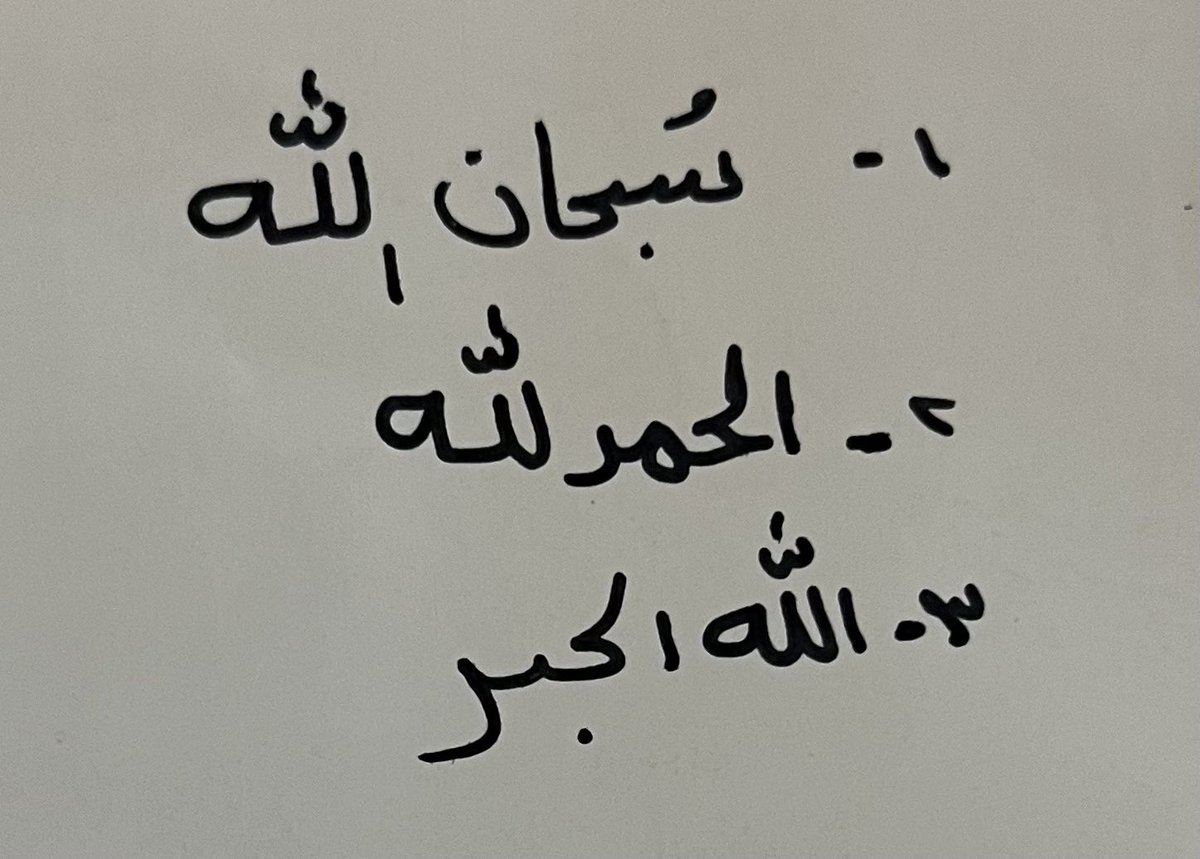 ١- سُبحان اللّٰه
٢- الحمد للّٰه
٣- اللّٰه اكبر